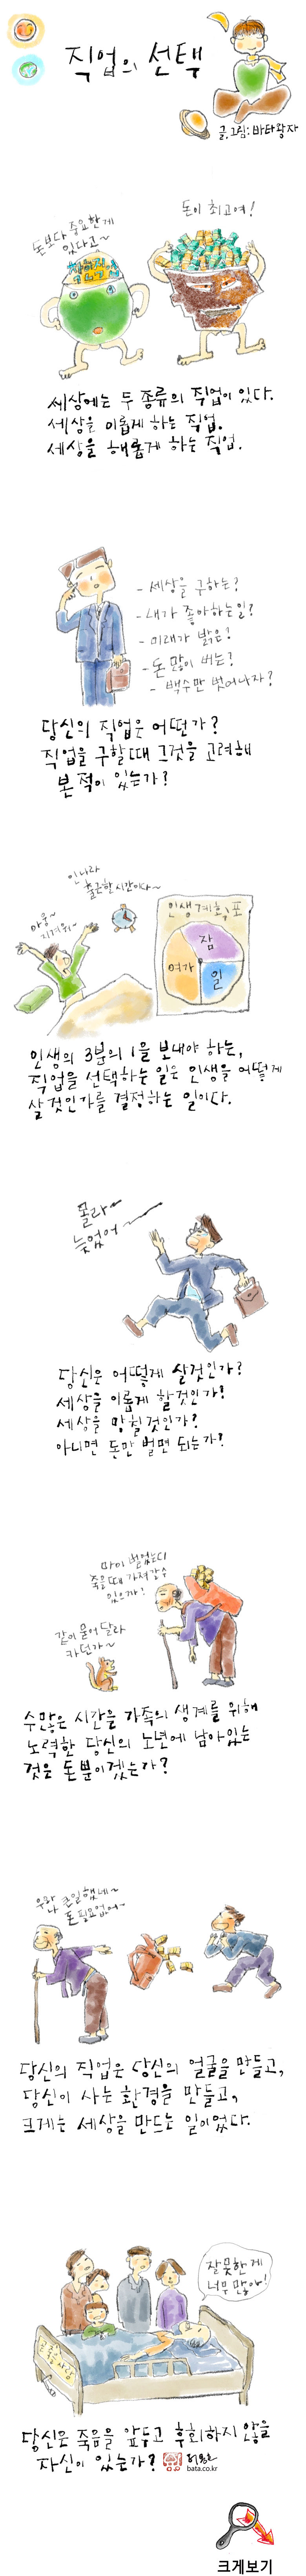 직업의 선택
글,그림: 바타왕자
돈보다 중요한게
있다고~
돈이 최고여!
세상에는 두 종류의 직업이 있다.
세상을 이롭게 하는 직업.
세상을 해롭게 하는 직업.
- 세상을 구하는?
- 내가 좋아하는 일?
- 미래가 밝은?
- 돈 많이 버는?
- 백수만 벗어나자?
당신의 직업은 어떤가?
직업을 구할때 그것을 고려해
본 적이 있는가?
인나라
출근할 시간이다~
아웅~
지겨워~
인생계획표
잠
여가
일
인생의 3분의 1을 보내야 하는,
직업을 선택하는 일은 인생을 어떻게
살것인가를 결정하는 일이다.
몰라~
늦었어
당신은 어떻게 살것인가?
세상을 이롭게 할것인가?
세상을 망칠것인가?
아니면 돈만 벌면 되는가?
마이 벌었는디
죽을때 가져갈수
있으까!
같이 묻어 달라
카던가~
수많은 시간을 가족의 생계를 위해
노력한 당신의 노년에 남아있는
것은 돈뿐이겠는가?
우와
나 큰일했네~
돈 필요없어~
당신의 직업은 당신의 얼굴을 만들고,
당신이 사는 환경을 만들고,
크게는 세상을 만드는 일이었다.
잘못한게
너무 많아!
당신은 죽음을 앞두고 후회하지 않을
자신이 있는가?
bata.co.kr
크게보기